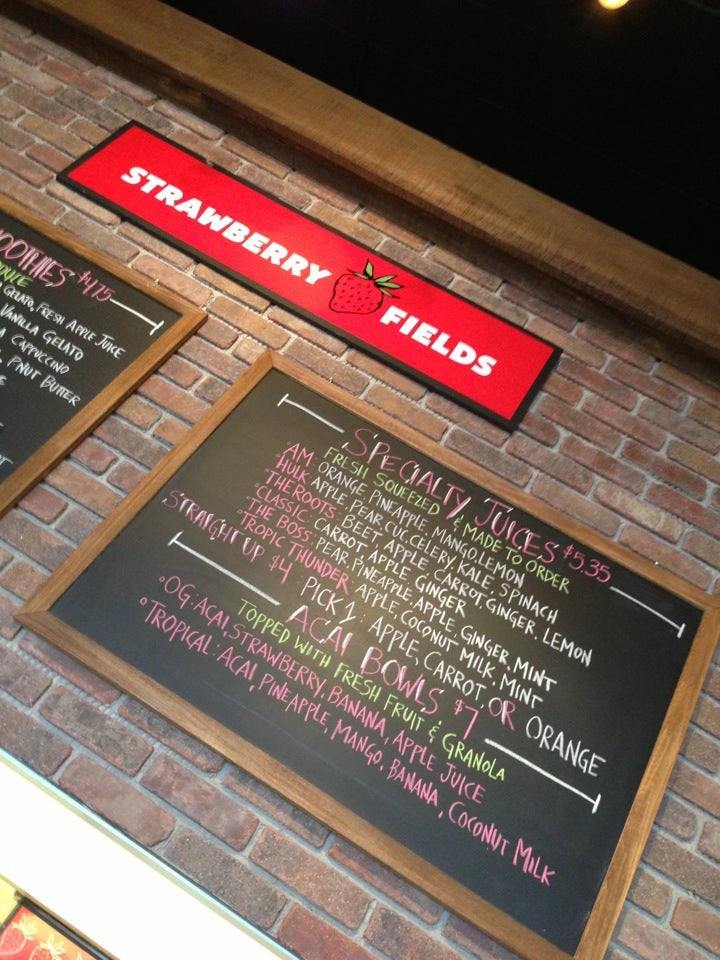 STRAWBERRY FIELDS
SMOOTHIES $4.75
GELATO, FRESH APPLE JUICE
VANILLA GELATO
CAPPUCCINO
P'NUT BUTTER
SPECIALTY JUICES $5.35
FRESH SQUEEZED & MADE TO ORDER
AM: ORANGE, PINEAPPLE, MANGO, LEMON
HULK: APPLE, PEAR, CUC, CELERY, KALE, SPINACH
THE ROOTS: BEET, APPLE, CARROT, GINGER, LEMON
CLASSIC: CARROT, APPLE, GINGER
THE BOSS: PEAR, PINEAPPLE, APPLE, GINGER, MINT
TROPIC THUNDER: APPLE, COCONUT MILK, MINT
STRAIGHT UP $4: PICK 1: APPLE, CARROT, OR ORANGE
ACAI BOWLS $7
TOPPED WITH FRESH FRUIT & GRANOLA
OG: ACAI, STRAWBERRY, BANANA, APPLE JUICE
TROPICAL: ACAI, PINEAPPLE, MANGO, BANANA, COCONUT MILK